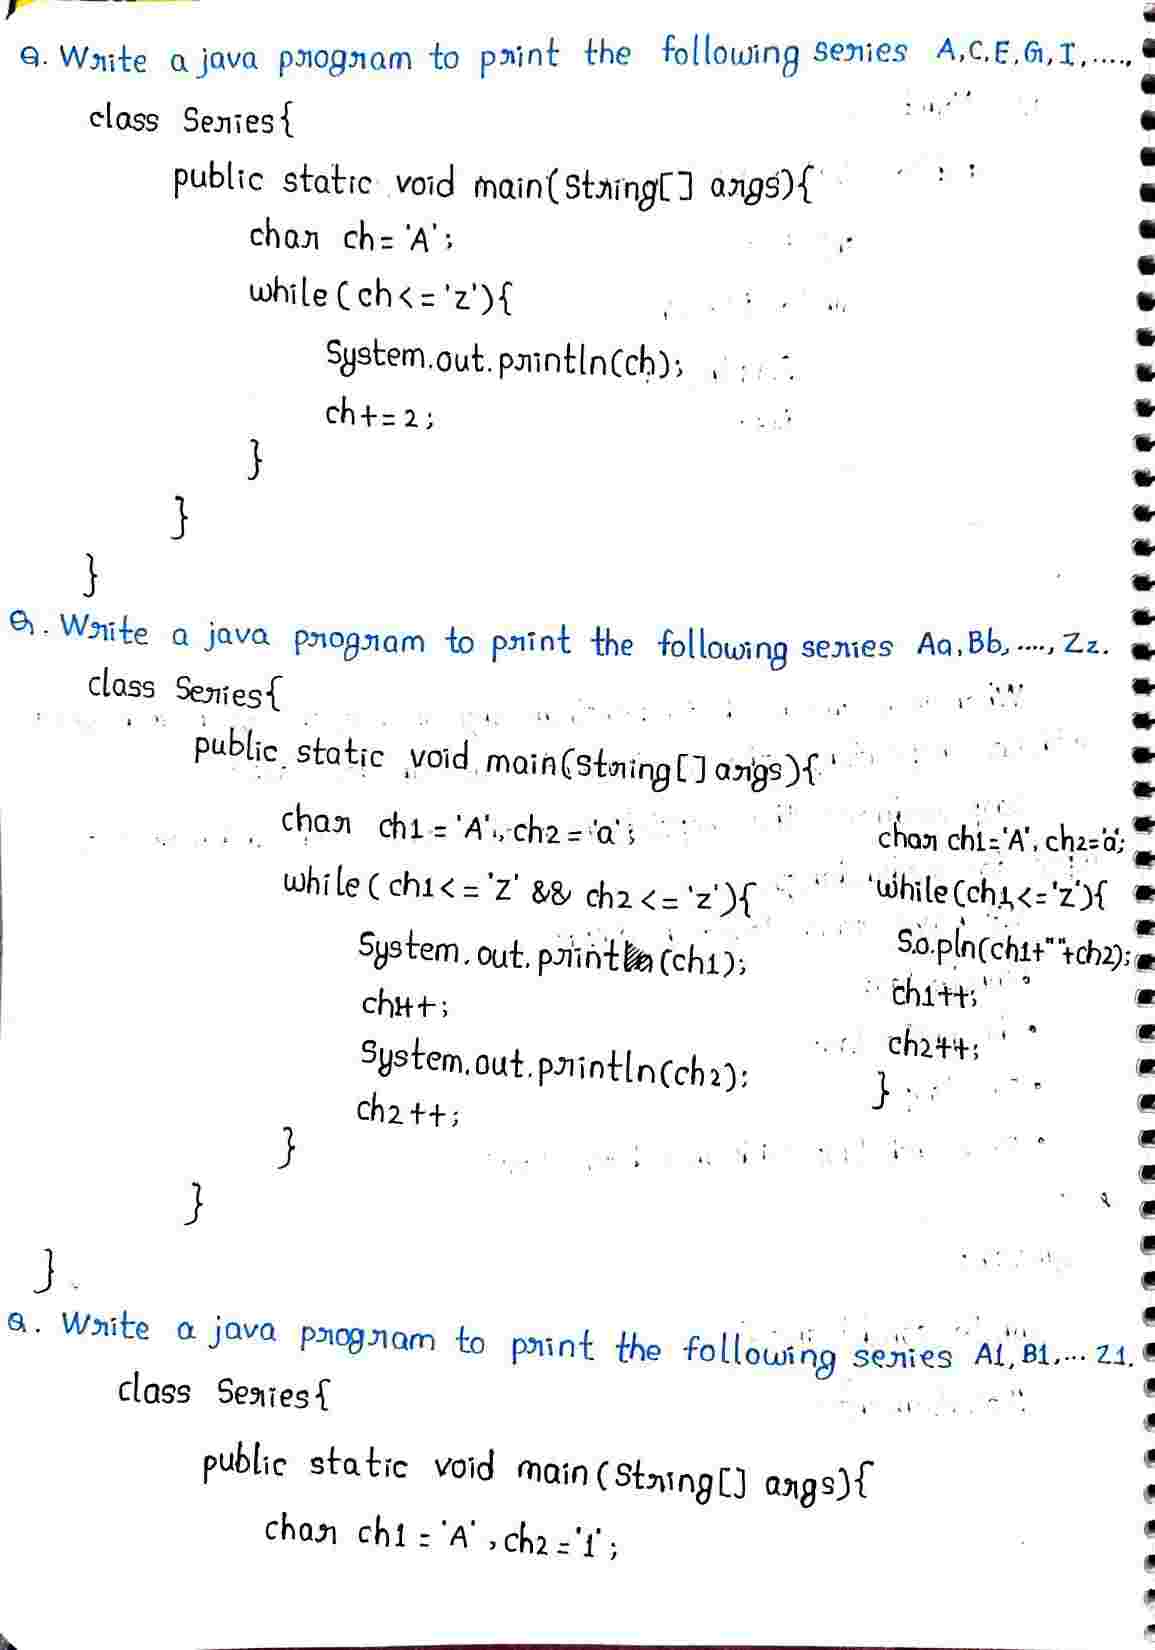 Q. Write a java program to print the following series A,C,E,G,I,....,
class Series{
public static void main(String[] args){
char ch='A';
while(ch<='z'){
System.out.println(ch);
ch+=2;
}
}
}
Q. Write a java program to print the following series Aa,Bb,....,Zz.
class Series{
public static void main(String[] args){
char ch1='A', ch2='a';
while(ch1<='z' && ch2<='z'){
System.out.print(ch1);
ch1++;
System.out.println(ch2);
ch2++;
}
}
}
char ch1='A', ch2='a';
while(ch1<='z'){
S.o.pln(ch1+""+ch2);
ch1++;
ch2++;
}
Q. Write a java program to print the following series A1,B1,... Z1.
class Series{
public static void main(String[] args){
char ch1='A', ch2='1';